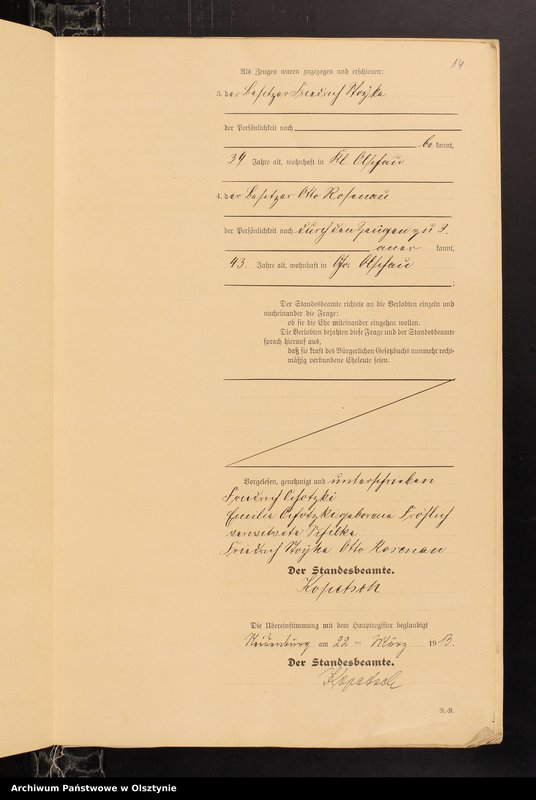 14
Als Zeugen waren zugezogen und erschienen:
3. der Besitzer Friedrich Stoyke
der Persönlichkeit nach
be kannt,
39 Jahre alt, wohnhaft in Kl. Olschau
4. der Besitzer Otto Rosenau
der Persönlichkeit nach durch den Zeugen zu 3.
aner kannt,
43 Jahre alt, wohnhaft in Gr. Olschau
;
Der Standesbeamte richtete an die Verlobten einzeln und
nacheinander die Frage:
ob sie die Ehe miteinander eingehen wollen.
Die Verlobten bejahten diese Frage und der Standesbeamte
sprach hierauf aus,
daß sie kraft des Bürgerlichen Gesetzbuchs nunmehr recht-
mäßig verbundene Eheleute seien.
Vorgelesen, genehmigt und unterschrieben
Friedrich
Emilie geborene Fröhlich
verwitwete
Friedrich Stoyke Otto Rosenau
Der Standesbeamte.
Kopetsch
Die Übereinstimmung mit dem Hauptregister beglaubigt
Neidenburg am 22 ten März 1913.
Der Standesbeamte.
Kopetsch
N.-R.
Archiwum Państwowe w Olsztynie